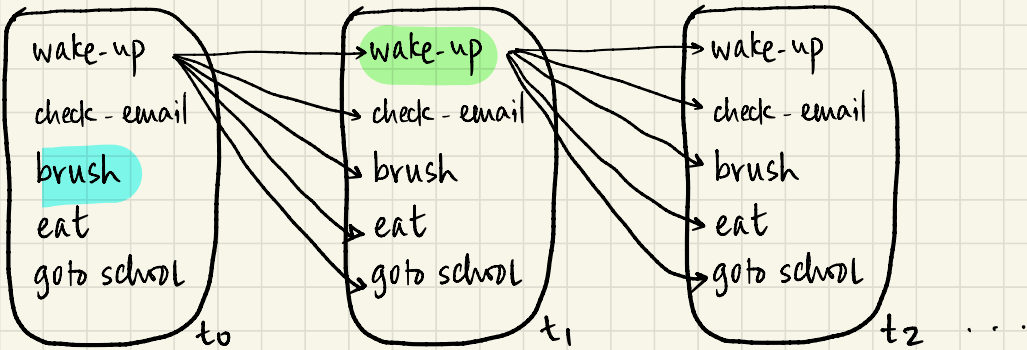 wake-up
check-email
brush
eat
goto school
t0
wake-up
check-email
brush
eat
goto school
t1
wake-up
check-email
brush
eat
goto school
t2 ....